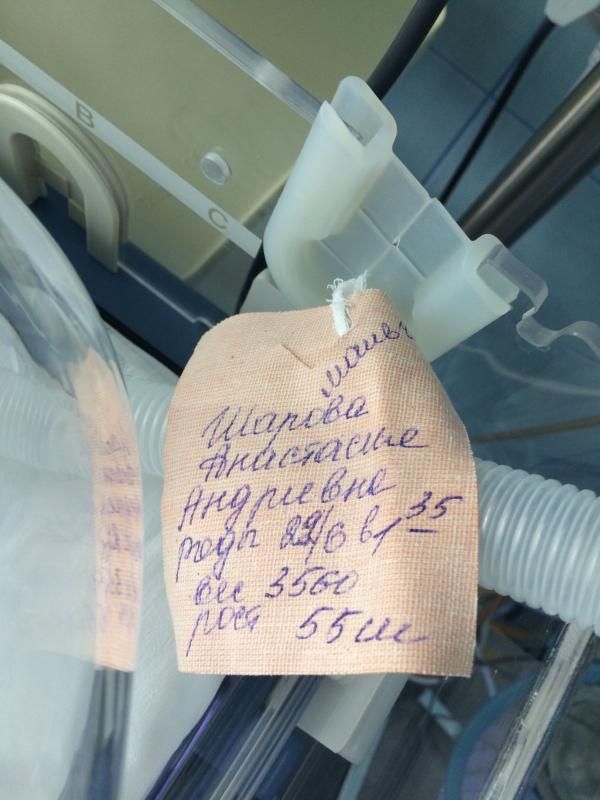 B
C
мальч
Шарова
Анастасия
Андреевна
роды 29/6 в 1 35
вес 3560
рост 55см